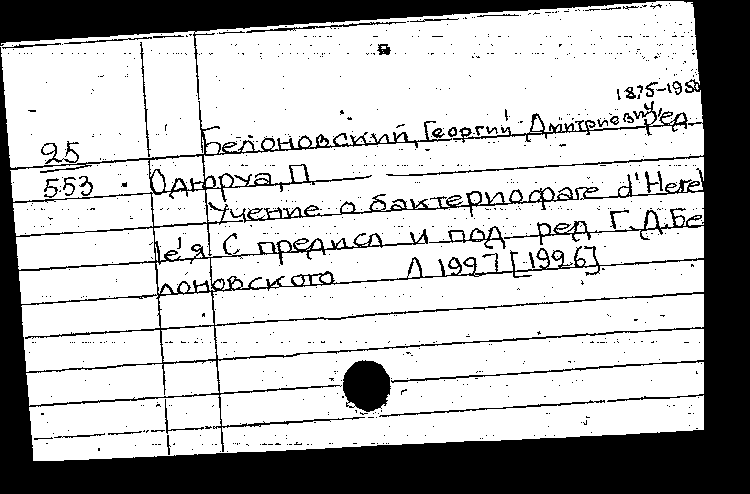 1875-1950
Белоновский, Георгий Дмитриевич ред
25
553
Одюруа, П.
Учение о бактериофаге d'Herel
le'я С предисл и под ред Г.Д.Бе
лоновского Л 1927 [1926]